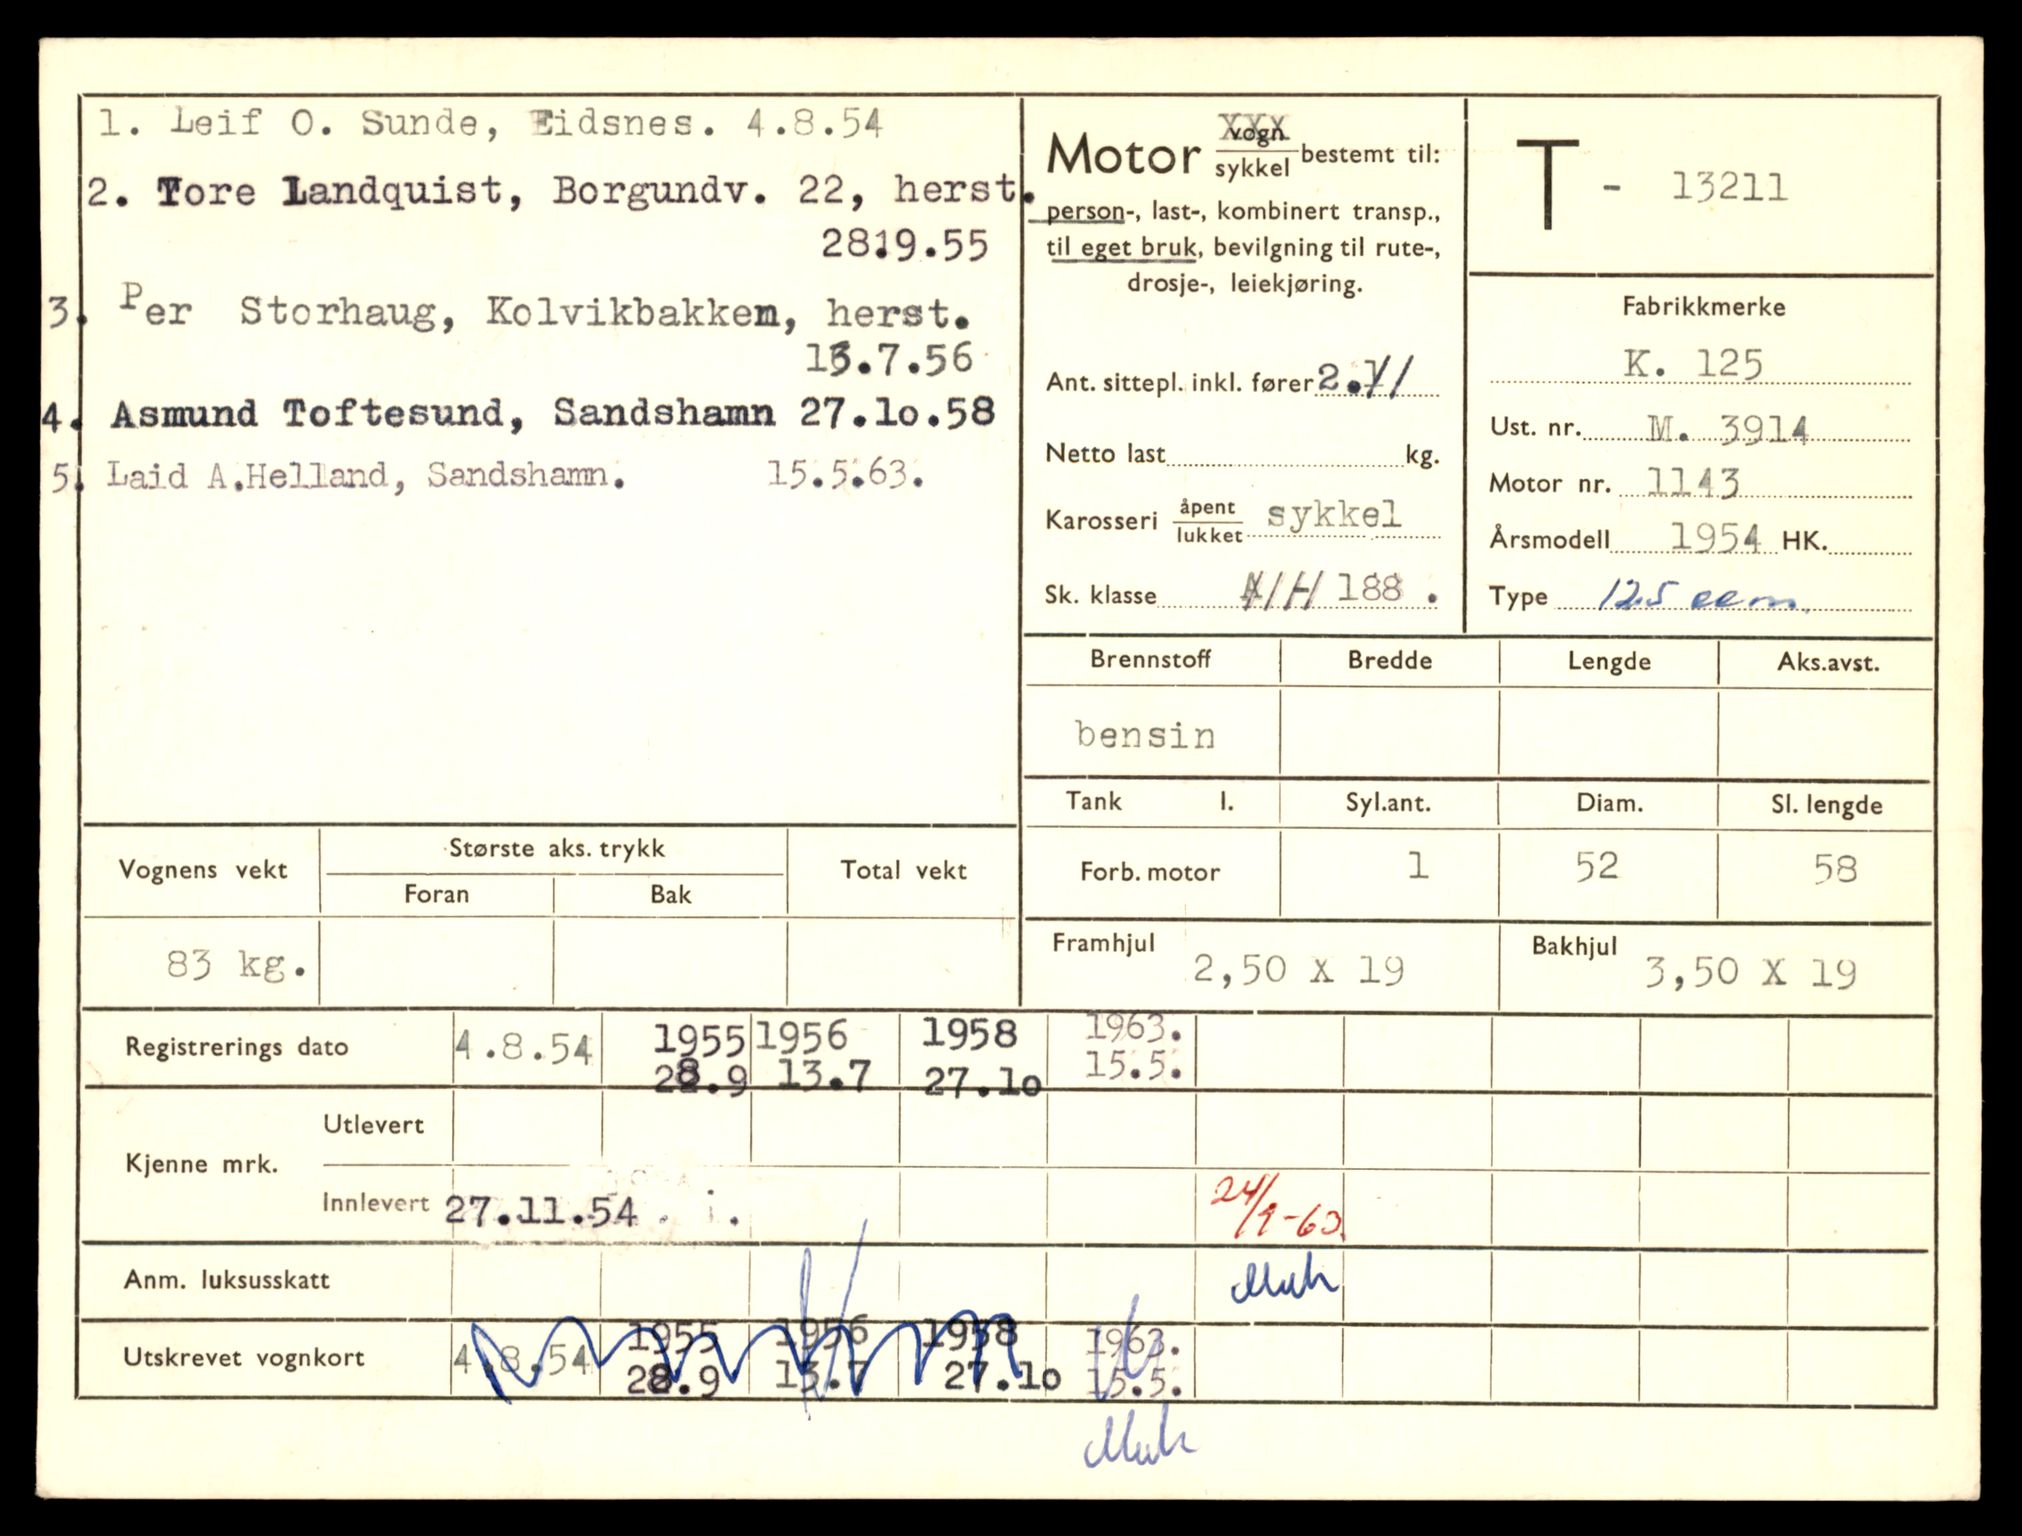 1. Leif O. Sunde, Eidsnes. 4.8.54
2. Tore Landquist, Borgundv. 22, herst.
28.9.55
3. Per Storhaug, Kolvikbakken, herst.
13.7.56
4. Asmund Toftesund, Sandshamn 27.10.58
5. Laid A.Helland, Sandshamn. 15.5.63.
Motor vogn XXX
sykkel bestemt til:
person-, last-, kombinert transp.,
til eget bruk, bevilgning til rute-,
drosje-, leiekjøring.
Ant. sittepl. inkl. fører 2.
Netto last kg.
Karosseri åpent
lukket sykkel
Sk. klasse H 188 .
T - 13211
Fabrikkmerke
K. 125
Ust. nr. M. 3914
Motor nr. 1143
Årsmodell 1954 HK.
Type 125 ccm.
Brennstoff Bredde Lengde Aks.avst.
bensin
Tank l. Syl.ant. Diam. Sl. lengde
Forb. motor 1 52 58
Framhjul 2,50 X 19 Bakhjul 3,50 X 19
Vognens vekt Største aks. trykk Total vekt
Foran Bak
83 kg.
Registrerings dato 4.8.54 1955 1956 1958 1963.
28.9 13.7 27.10 15.5.
Kjenne mrk. Utlevert
Innlevert 27.11.54 24/9-63
Anm. luksusskatt
Utskrevet vognkort 4.8.54 1955 1956 1958 1963.
28.9 13.7 27.10 15.5.